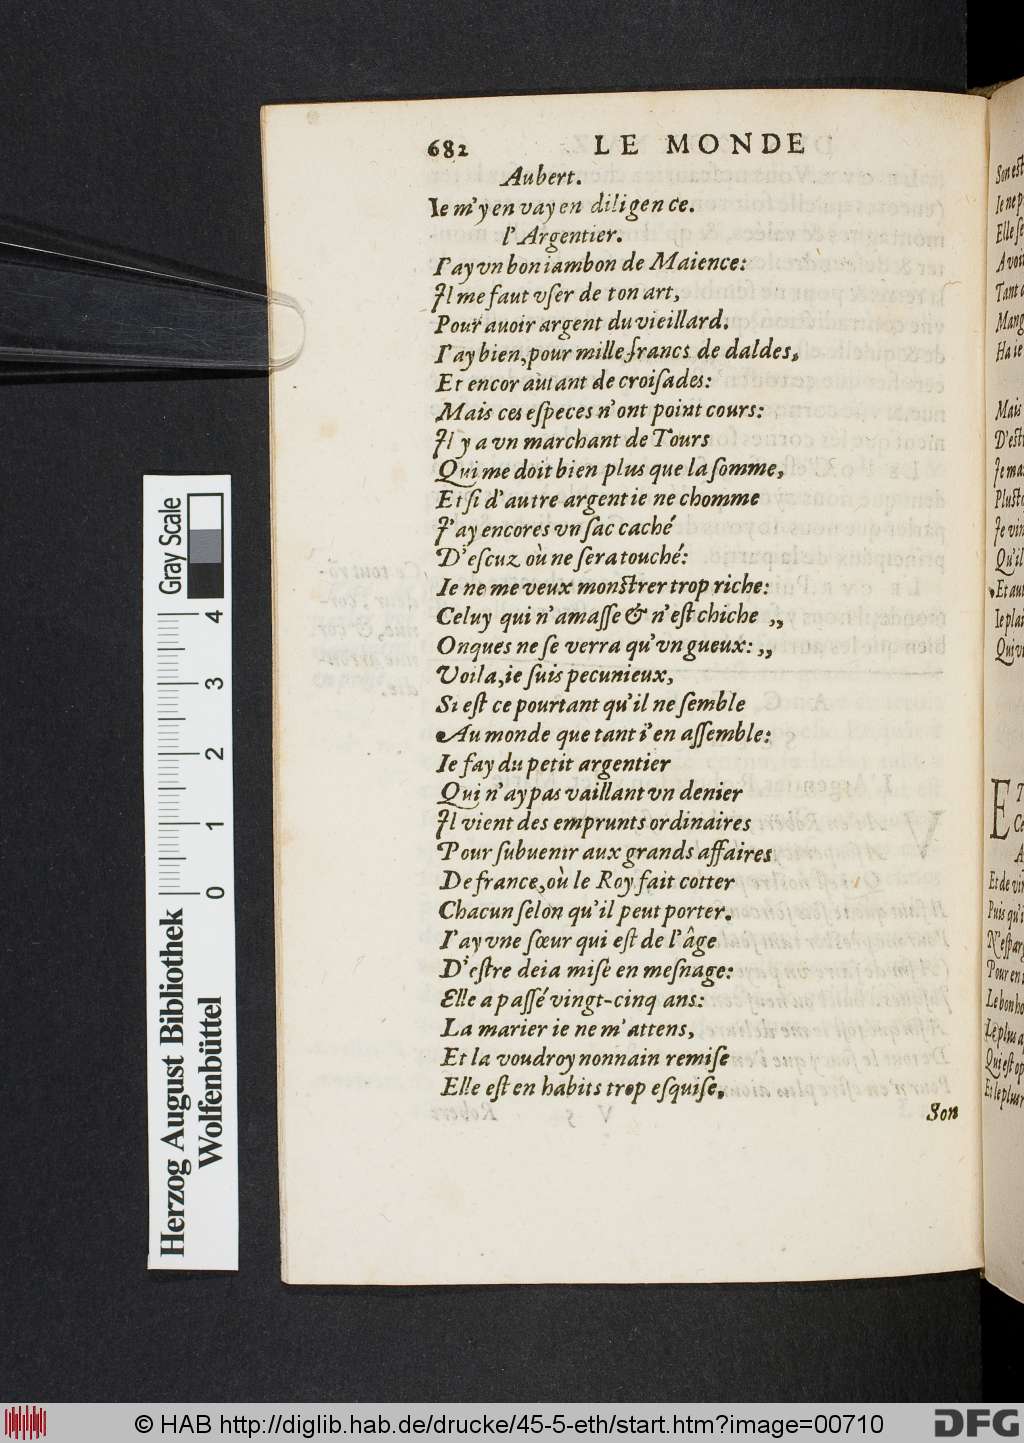 682 LE MONDE
Aubert.
Ie m'y en vay en diligence.
l'Argentier.
I'ay vn bon iambon de Maience:
Il me faut vser de ton art,
Pour auoir argent du vieillard.
I'ay bien, pour mille francs de daldes,
Et encor autant de croisades:
Mais ces especes n'ont point cours:
Il y a vn marchant de Tours
Qui me doit bien plus que la somme,
Et si d'autre argent ie ne chomme
J'ay encores vn sac caché
D'escuz où ne sera touché:
Ie ne me veux monstrer trop riche:
Celuy qui n'amasse & n'est chiche ,,
Onques ne se verra qu'vn gueux: ,,
Voila, ie suis pecunieux,
Si est ce pourtant qu'il ne semble
Au monde que tant i'en assemble:
Ie fay du petit argentier
Qui n'ay pas vaillant vn denier
Il vient des emprunts ordinaires
Pour subuenir aux grands affaires
De france, où le Roy fait cotter
Chacun selon qu'il peut porter.
I'ay vne sœur qui est de l'âge
D'estre deia mise en mesnage:
Elle a passé vingt-cinq ans:
La marier ie ne m'attens,
Et la voudroy nonnain remise
Elle est en habits trop esquise.
Son
Son est
Ie ne p
Elle se
A voi
Tant
Mang
Ha ie
Mais
D'est
Je ma
Plust
Je vin
Qu'il
Et au
Ie plai
Qui vi
ET
Ce
A
Et de vi
Puis qu'i
N'espar
Pour en
Le bon ho
Le plus a
Qui est op
Et le plus
Gray Scale
0 1 2 3 4
Herzog August Bibliothek
Wolfenbüttel
© HAB http://diglib.hab.de/drucke/45-5-eth/start.htm?image=00710
DFG